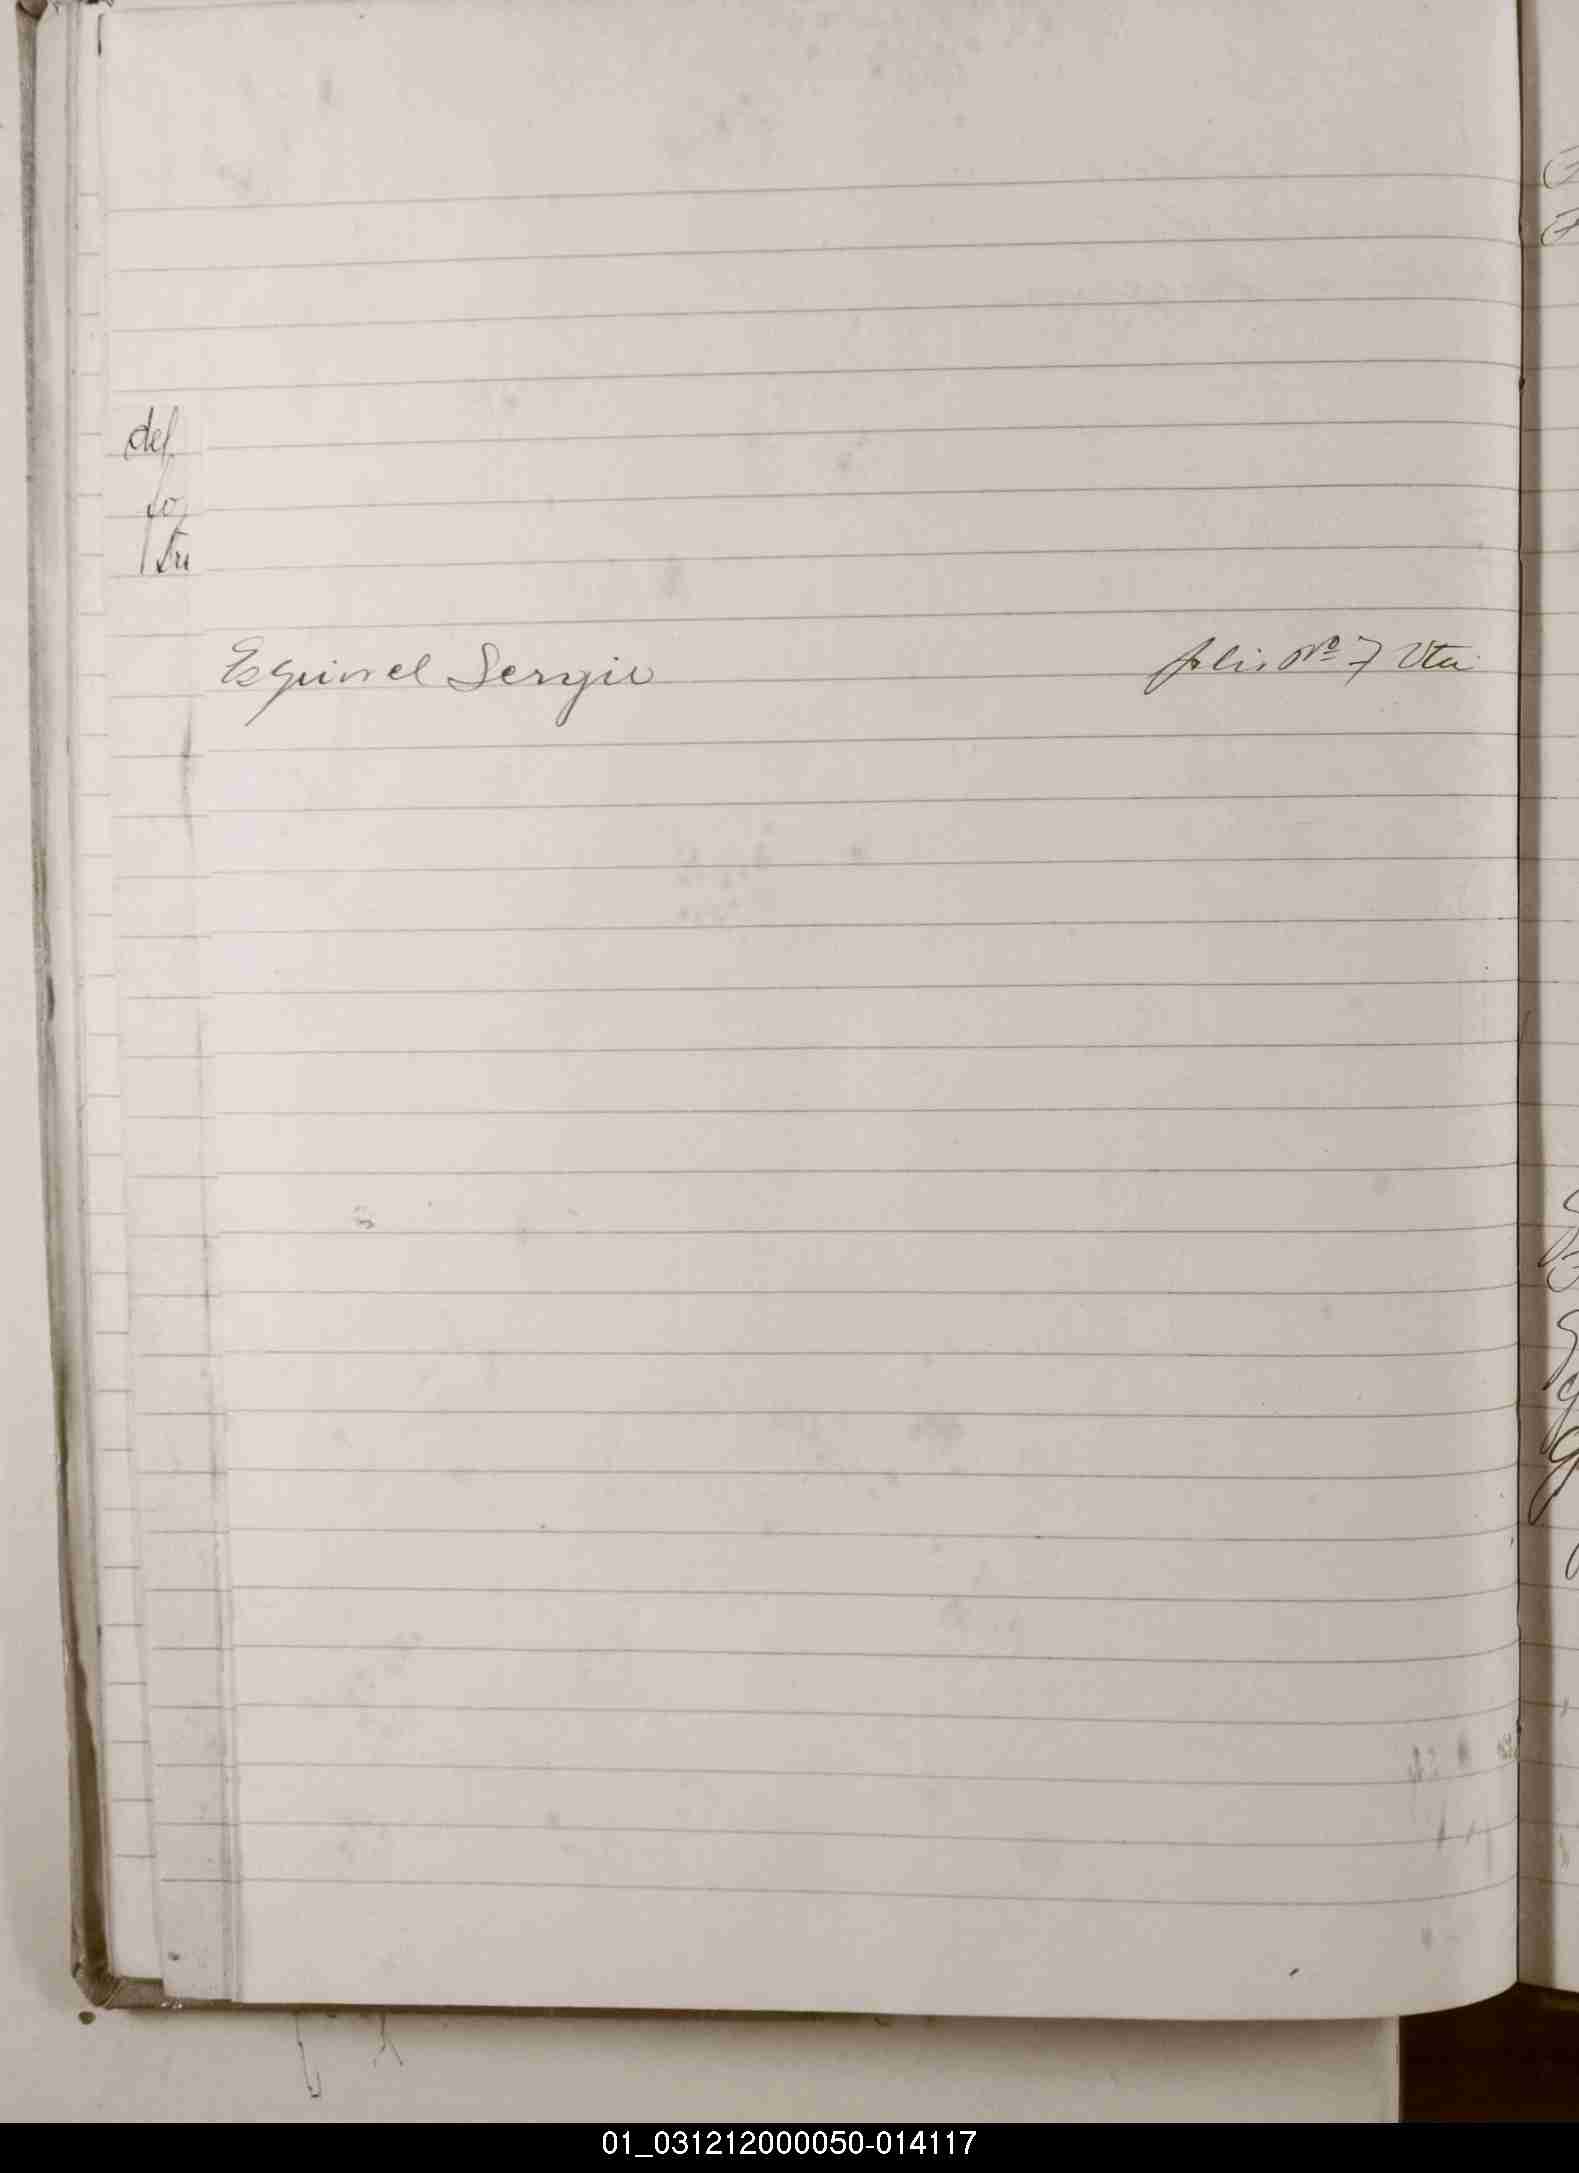 def
fo
tri
Esquivel Sergio folio Nº 7 Vta
01_031212000050-014117